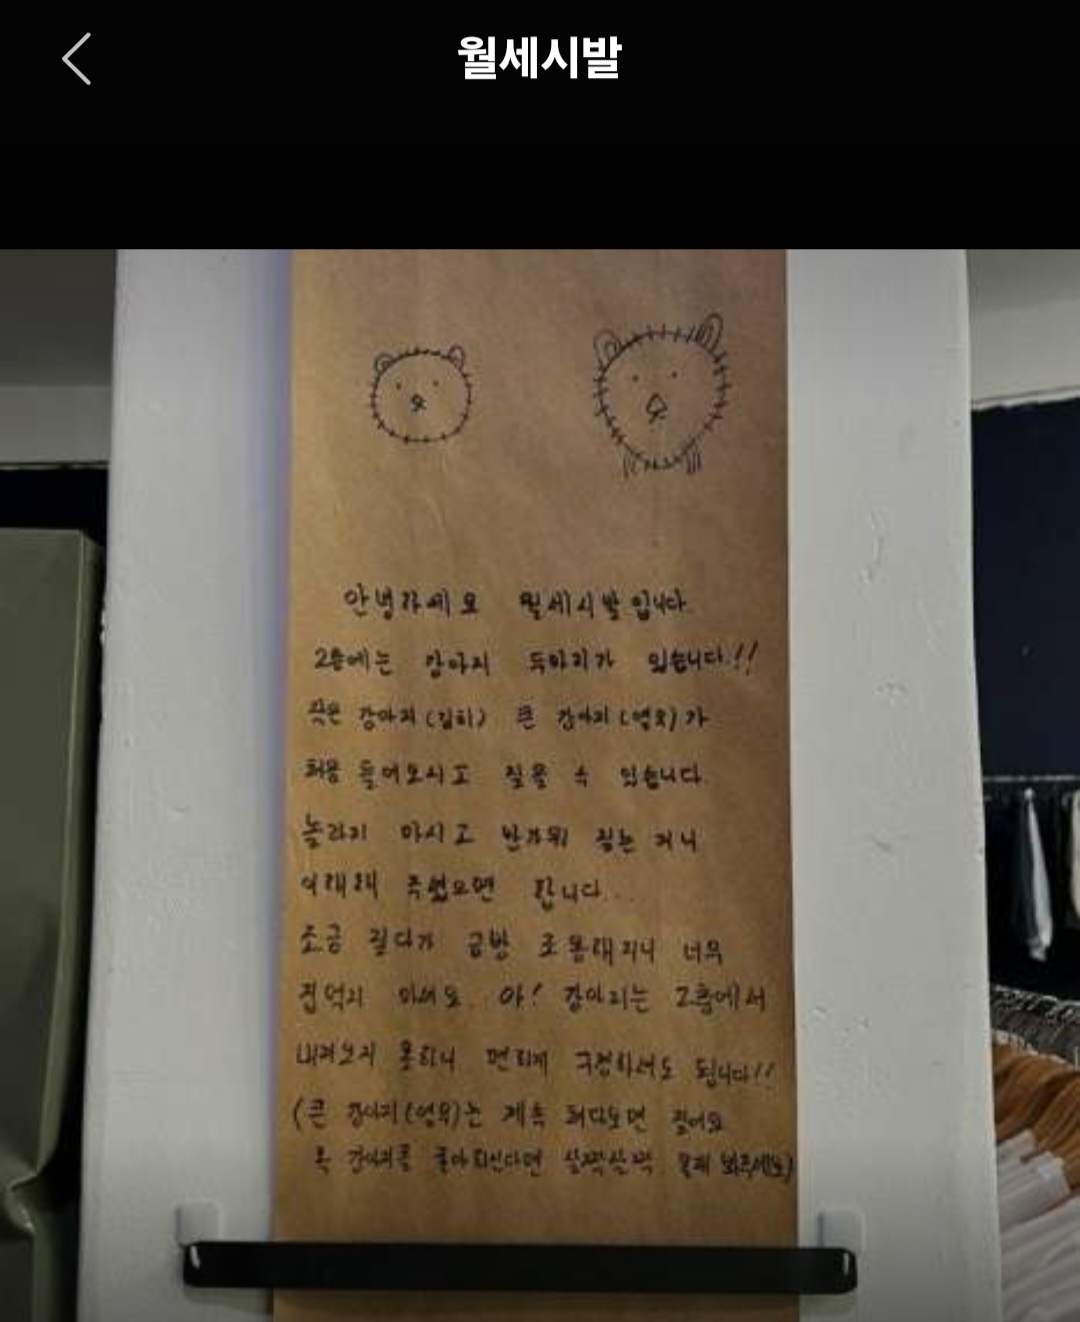 월세시발
안녕하세요 월세시발입니다.
2층에는 강아지 두마리가 있습니다!!
작은 강아지 큰 강아지(영웅)가
처음 들어오시고 짖을 수 있습니다.
놀라지 마시고 반가워 짖는 거니
이해해 주셨으면 합니다...
조금 짖다가 금방 조용해지니 너무
겁먹지 마세요. 아! 강아지는 2층에서
내려오지 못하니 편하게 구경하셔도 됩니다!!
(큰 강아지(영웅)는 계속 쳐다보면 짖어요
혹 강아지를 좋아하신다면 살짝살짝 몰래 봐주세요)